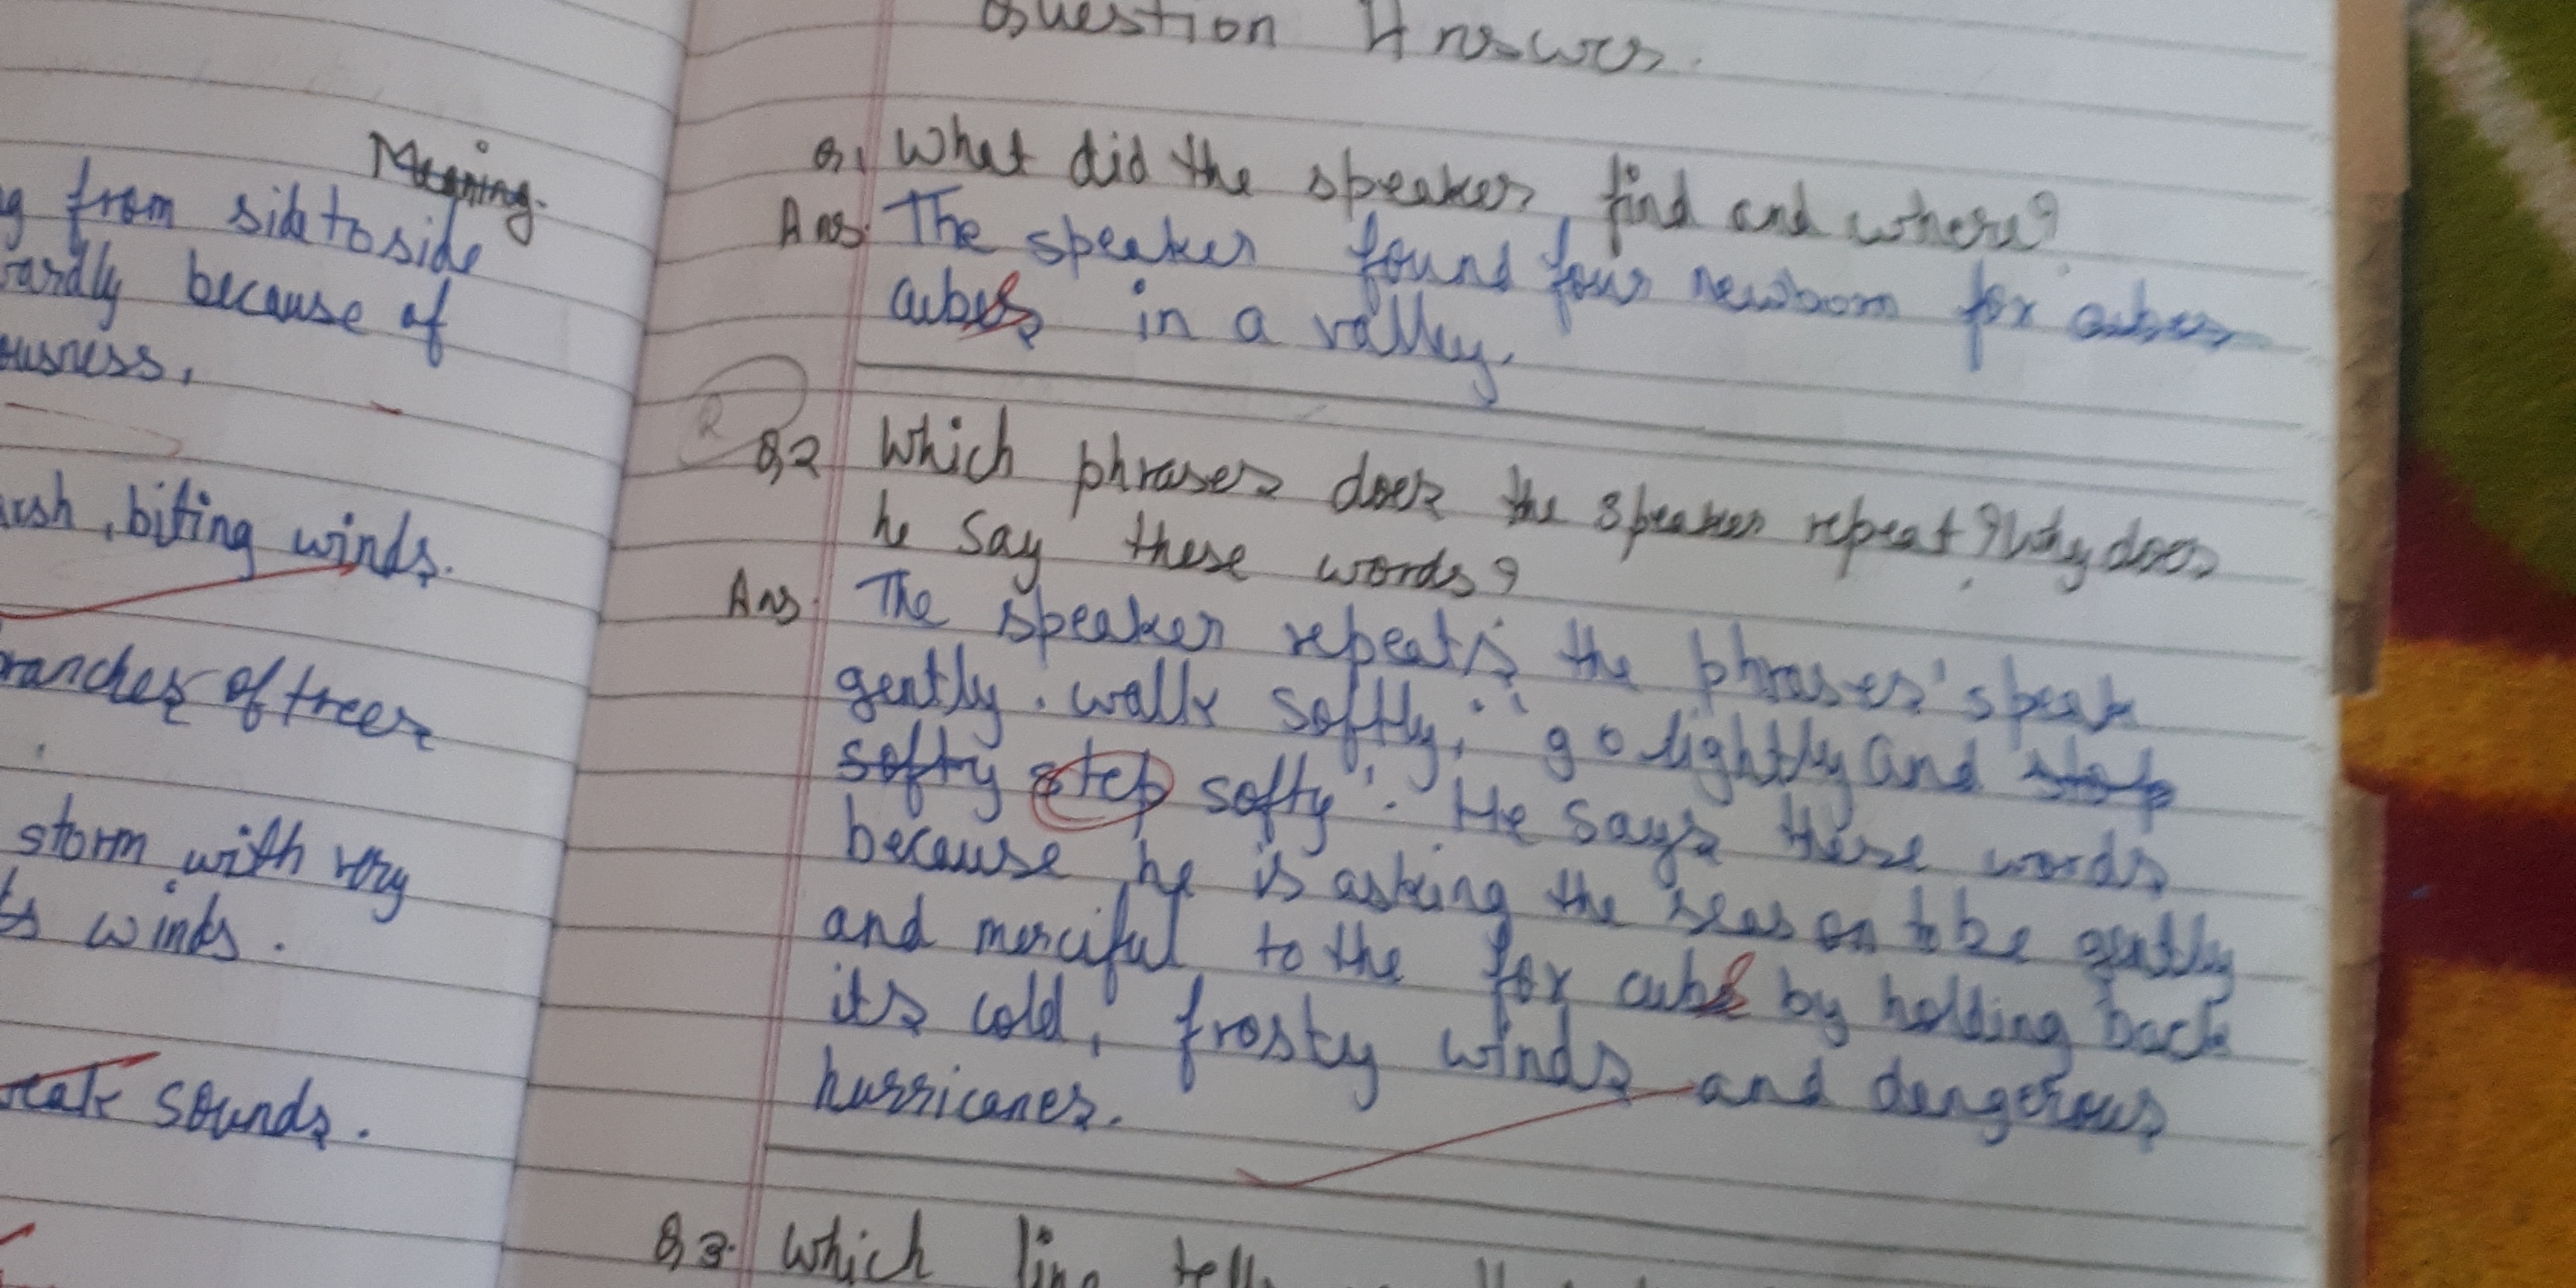 Meaning.
from side to side
because of
branches of trees
biting winds.
storm with very
winds.
sounds.
Question Answer.
Q1 What did the speaker find and where?
Ans. The speaker found four newborn fox cubes
cubs in a valley.
2
Q,2 Which phrases does the speaker repeat? Why does
he say these words?
Ans. The speaker repeats the phrases 'speak
gently. walk softly,' 'go lightly and step
softy step softy'. He says these words
because he is asking the season to be gently
and merciful to the fox cubs by holding back
its cold, frosty winds and dangerous
hurricanes.
Q,3. Which line tell